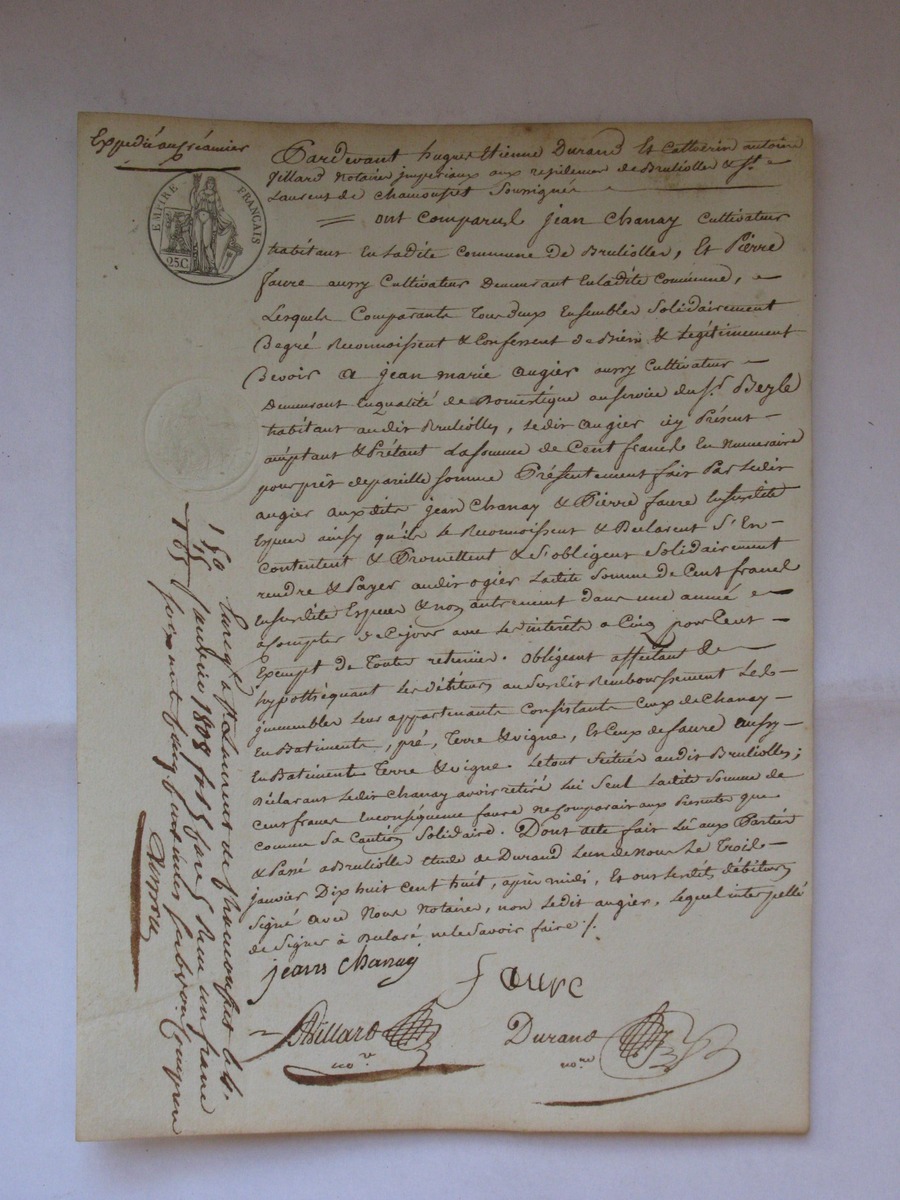 Expedié au créancier
EMPIRE FRANÇAIS
25C
Pardevant hugues Etienne Durand Et Catherin antoine
Villard Notaires impériaux aux residences de Brulioller & St.
Laurent de Chamousset Soussignes
ont Comparu jean Chanay Cultivateur
habitant En ladite Commune de Bruliolles, Et Pierre
faure aussy Cultivateur Demeurant En ladite Commune,
Lesquels Comparants Tous deux Ensembles Solidairement
De gré Reconnoissent & Confessent de Bien & Legitimement
Devoir a jean marie augier aussy Cultivateur
Demeurant En qualité de Domestique au service du Sr. Bezle
habitant au dit Bruliolles, le dit augier icy Présent
acceptant & Prétant La somme de Cent francs En Numeraire
pour prêt de pareille somme Présentement fait Par ledit
augier aux dits jean Chanay & Pierre faure En susdite
Espece ainsy qu'ils le Reconnoissent & Declarent S'En
Contentent & Promettent & S'obligent Solidairement
rendre & Payer audit ogier Ladite Somme de Cent francs
En susdite Espece & non autrement dans une année
a Compter de Ce jour avec les interêts a Cinq pour Cent
Exempt de Toutes retenues. Obligeant affectant &
hypothéquant les débiteurs au susdit Remboursement Les
immeubles leur appartenants Consistants Ceux de Chanay
En Batiments, pré, Terre & vigne, Et Ceux de faure aussy
En Batiments Terre & vigne Le tout Situés au dit Bruliolles;
Déclarant le dit Chanay avoir retiré lui Seul Ladite Somme de
Cent francs En conséquence faure ne Comparait aux Presentes que
Comme Sa Caution Solidaire. Dont acte fait Lû aux Parties
& Passé a Bruliolle Etude de Durand L'un de Nous Le Trois
janvier Dix huit Cent huit, après midi, Et ont lesdits débiteurs
Signé avec Nous Notaires, non le dit augier, lequel interpellé
de Signer à Déclaré ne le Savoir faire ./.
jeans Chanay
faure
Villard
no.re
Durand
no.re
Enregé. a St. Laurent de Chamousset le
janvier 1808 fo. Reçu un franc